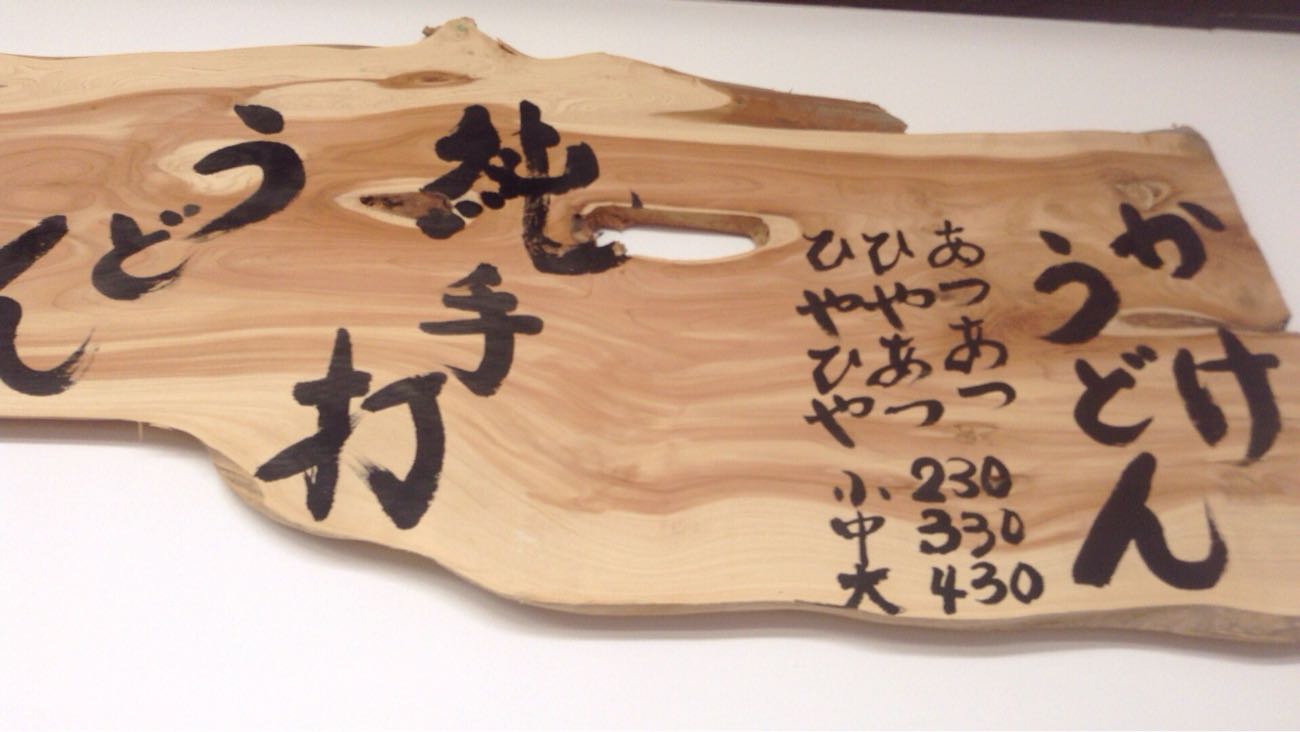 かけ
うどん
あつあつ
ひやあつ
ひやひや
小 230
中 330
大 430
純手打
うどん